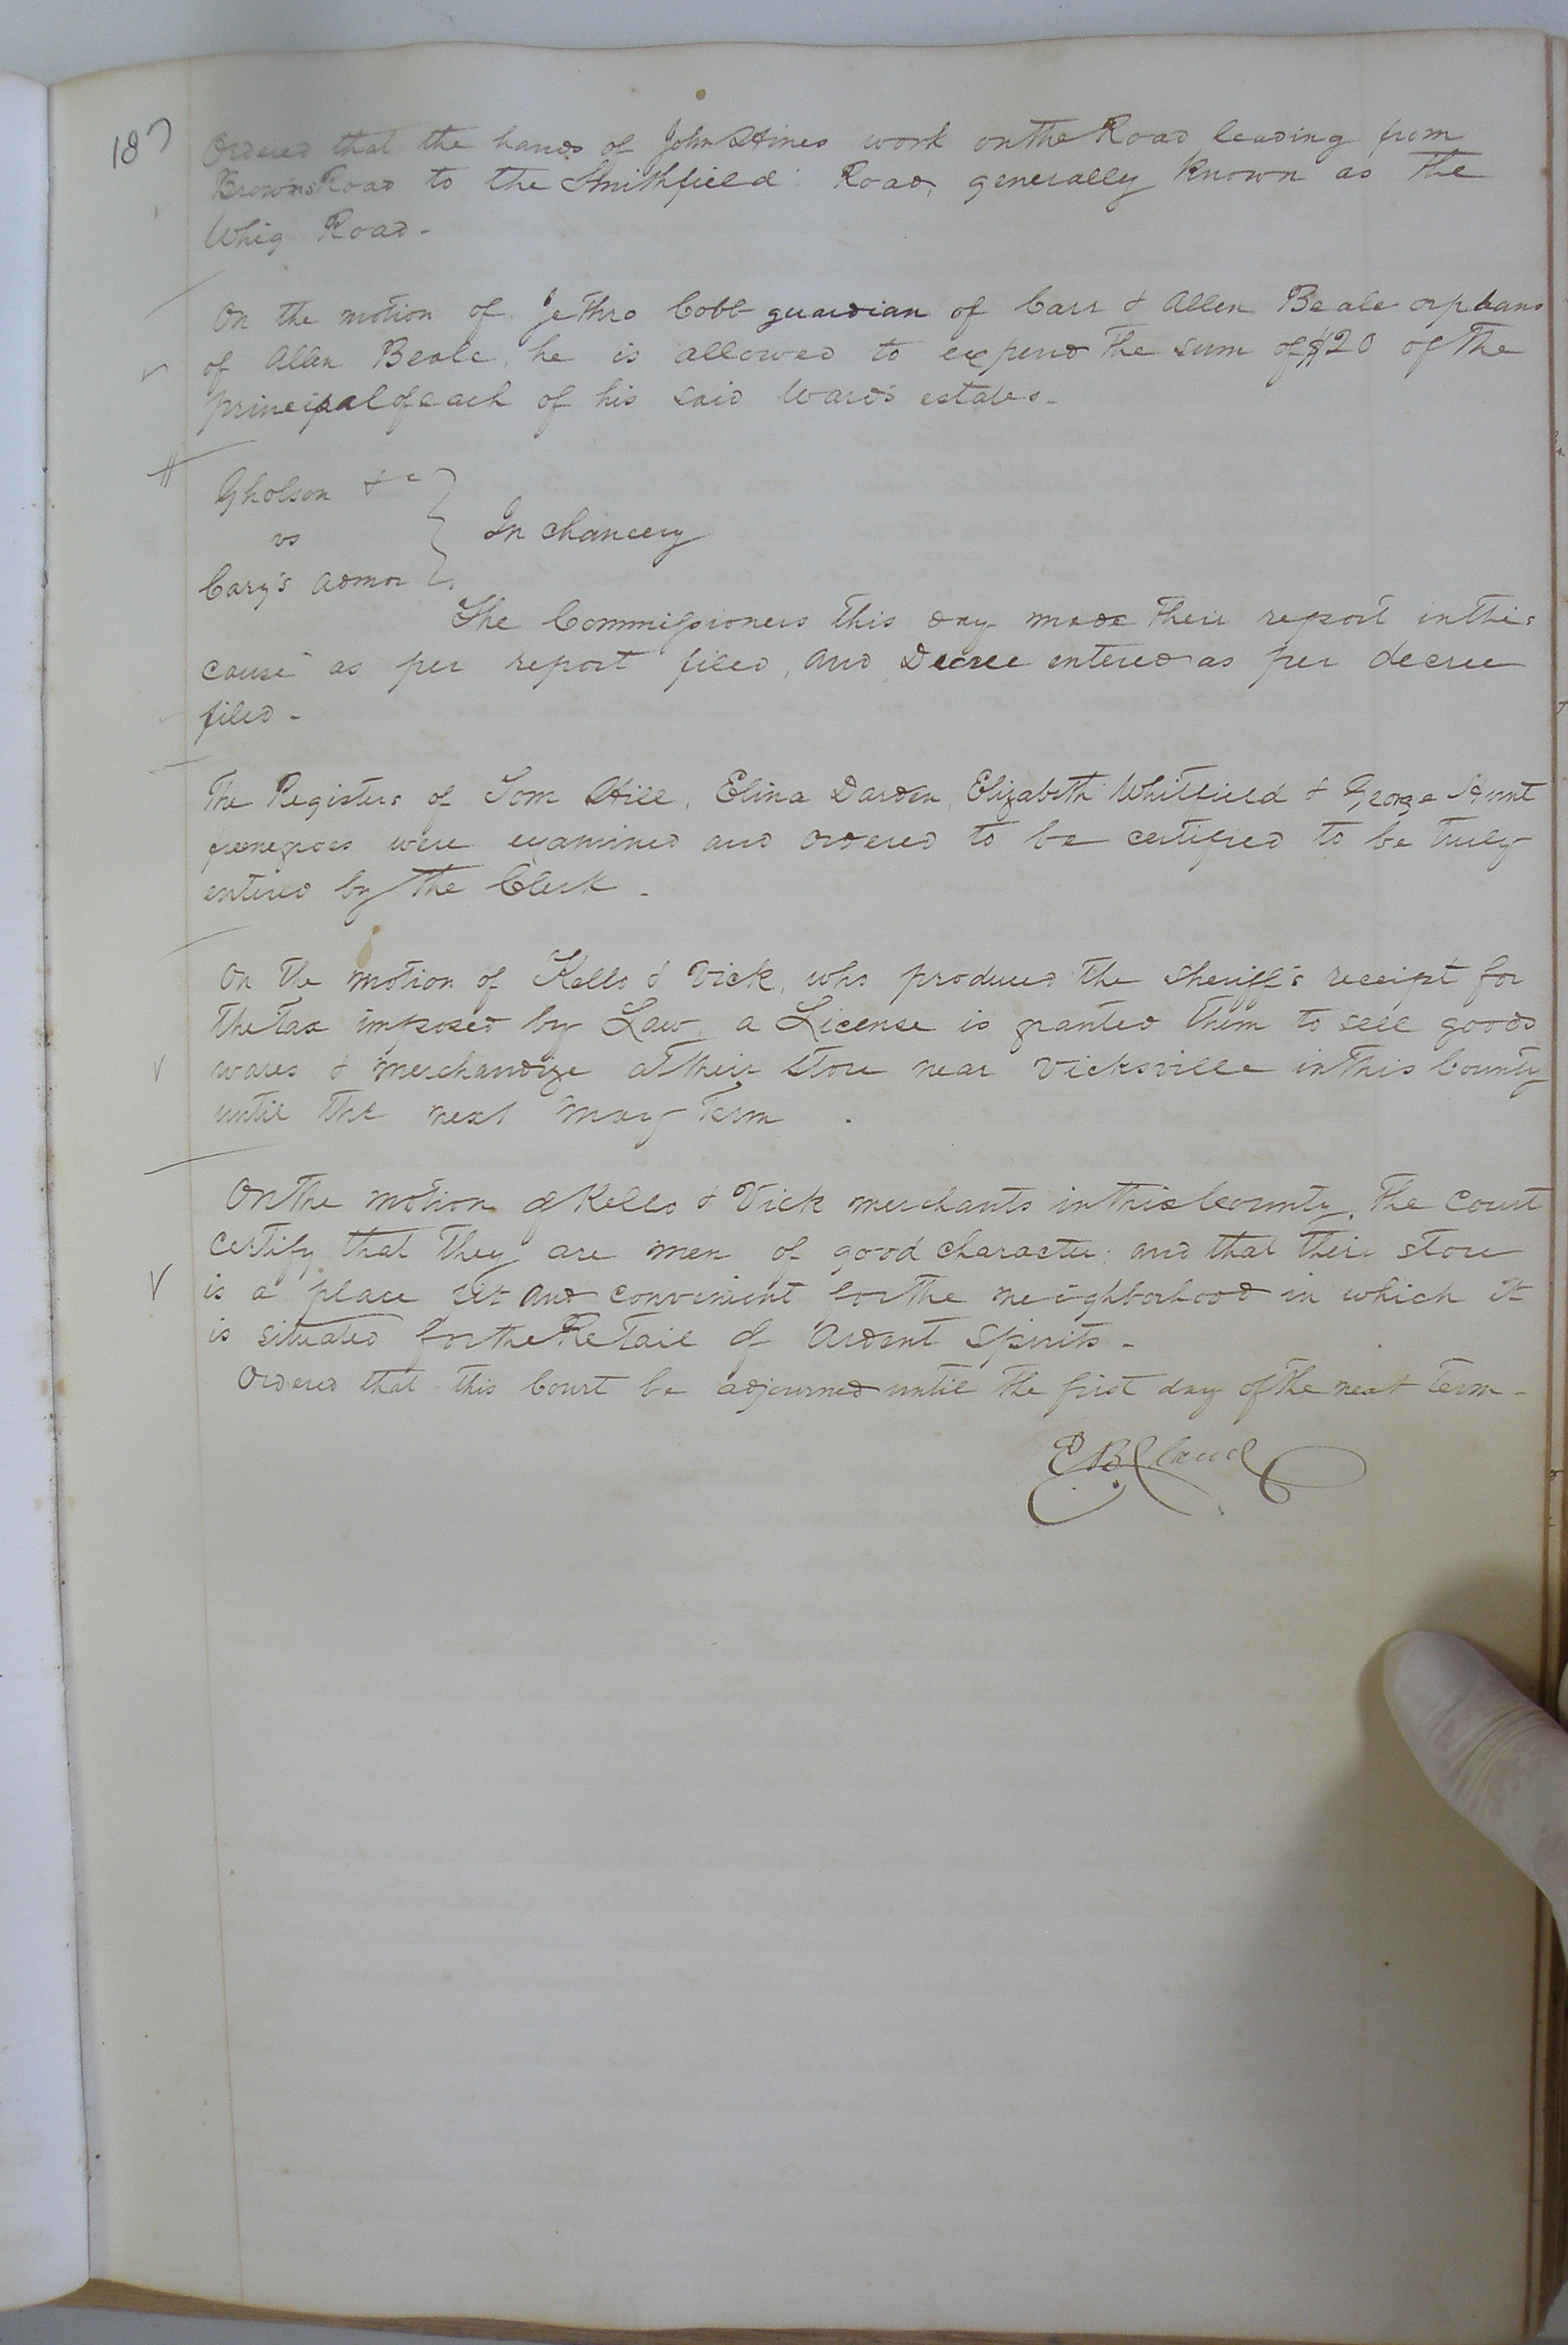 187
Ordered that the hands of John Hines work on the Road leading from
Browns Road to the Smithfield Road, generally known as the
Whig Road -
On the motion of Jethro Cobb guardian of Carr & Allen Beale orphans
of Allen Beale, he is allowed to expend the sum of $20 of the
principal of each of his said Ward's estates -
Gholson &c
vs } In chancery
Cary's admor
The Commissioners this day made their report in this
cause as per report filed, and Decree entered as per decree
filed -
The Registers of Tom Hill, Elina Darden, Elizabeth Whitfield & George Hunt
free negroes were examined and ordered to be certified to be truly
entered by the Clerk -
On the motion of Kello & Vick, who produced the Sheriff's receipt for
the tax imposed by Law, a License is granted them to sell goods
wares & merchandize at their store near Vicksville in this County
until the next May Term .
On the motion of Kello & Vick merchants in this County, The Court
certify that they are men of good character; and that their store
is a place fit and convenient for the neighborhood in which it
is situated for the Retail of Ardent Spirits -
Ordered that this Court be adjourned until the first day of the next term -
E B Claud